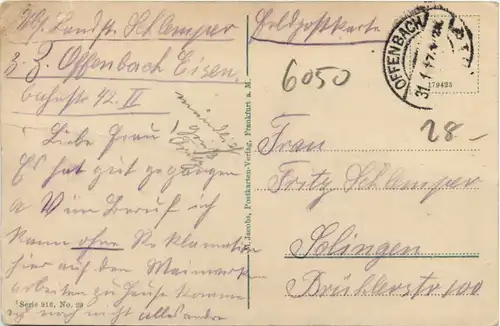 Abs. Landst. Schlemper
z. Z. Offenbach Eisen,
bahnstr 42. II
Liebe Frau!
Es hat gut gegangen
a Beruf ich
kann ohne Reklamation
hier auf den Mainwerken
arbeiten zu Hause komme
ich noch nicht alles andre
mündlich
Gruß
Fritz
Serie 216, No. 29
M. Jacobs, Postkarten-Verlag, Frankfurt a. M.
Feldpostkarte
OFFENBACH
31.1.17.
179425
6050
28-
Frau
Fritz Schlemper
Solingen
Brühlerstr 100